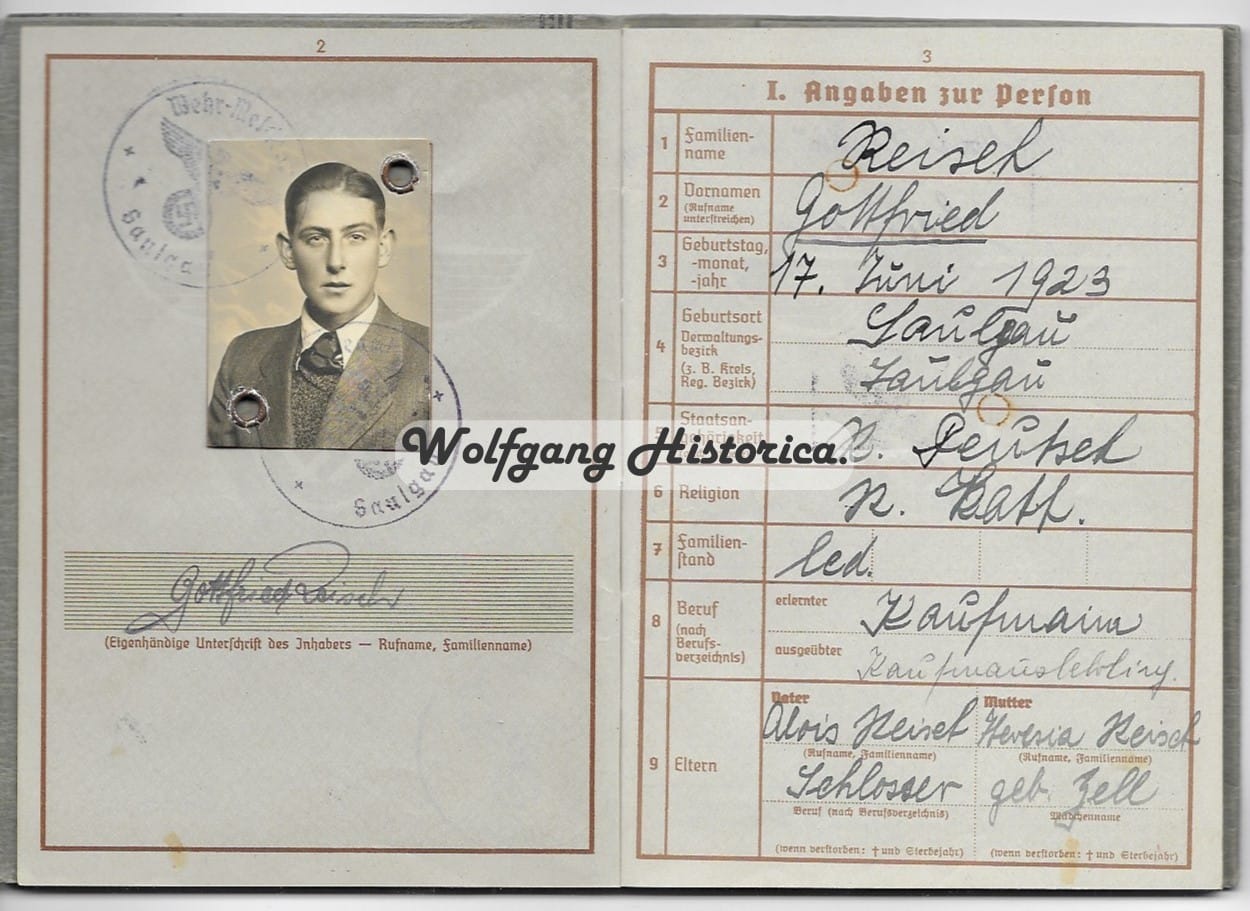 2
Wehr-Melde
Saulgau
Saulga
Gottfried Reisch
(Eigenhändige Unterschrift des Inhabers — Rufname, Familienname)
Wolfgang Historica.
3
I. Angaben zur Person
1 Familien-
name
Reisch
2 Vornamen
(Rufname
unterstreichen)
Gottfried
3 Geburtstag,
-monat,
-jahr
17. Juni 1923
4 Geburtsort
Verwaltungs-
bezirk
(z. B. Kreis,
Reg. Bezirk)
Saulgau
Saulgau
5 Staatsan-
gehörigkeit
R. Deutsch
6 Religion
R. Kath.
7 Familien-
stand
led.
8 Beruf
(nach
Berufs-
verzeichnis)
erlernter
Kaufmann
ausgeübter
Kaufmannslehrling.
9 Eltern
Vater
Alois Reisch
(Rufname, Familienname)
Schlosser
Beruf (nach Berufsverzeichnis)
(wenn verstorben: † und Sterbejahr)
Mutter
Theresia Reisch
(Rufname, Familienname)
geb. Zell
Mädchenname
(wenn verstorben: † und Sterbejahr)